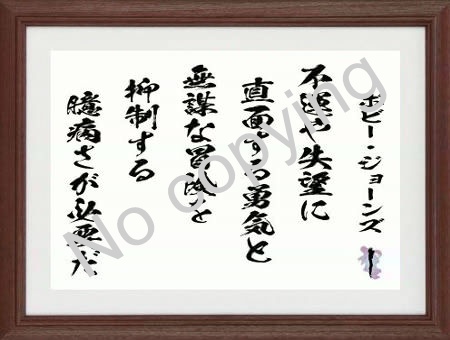 ボビー・ジョーンズ
不運や失望に
直面する勇気と
無謀な冒険を
抑制する
臆病さが必要だ
No copying